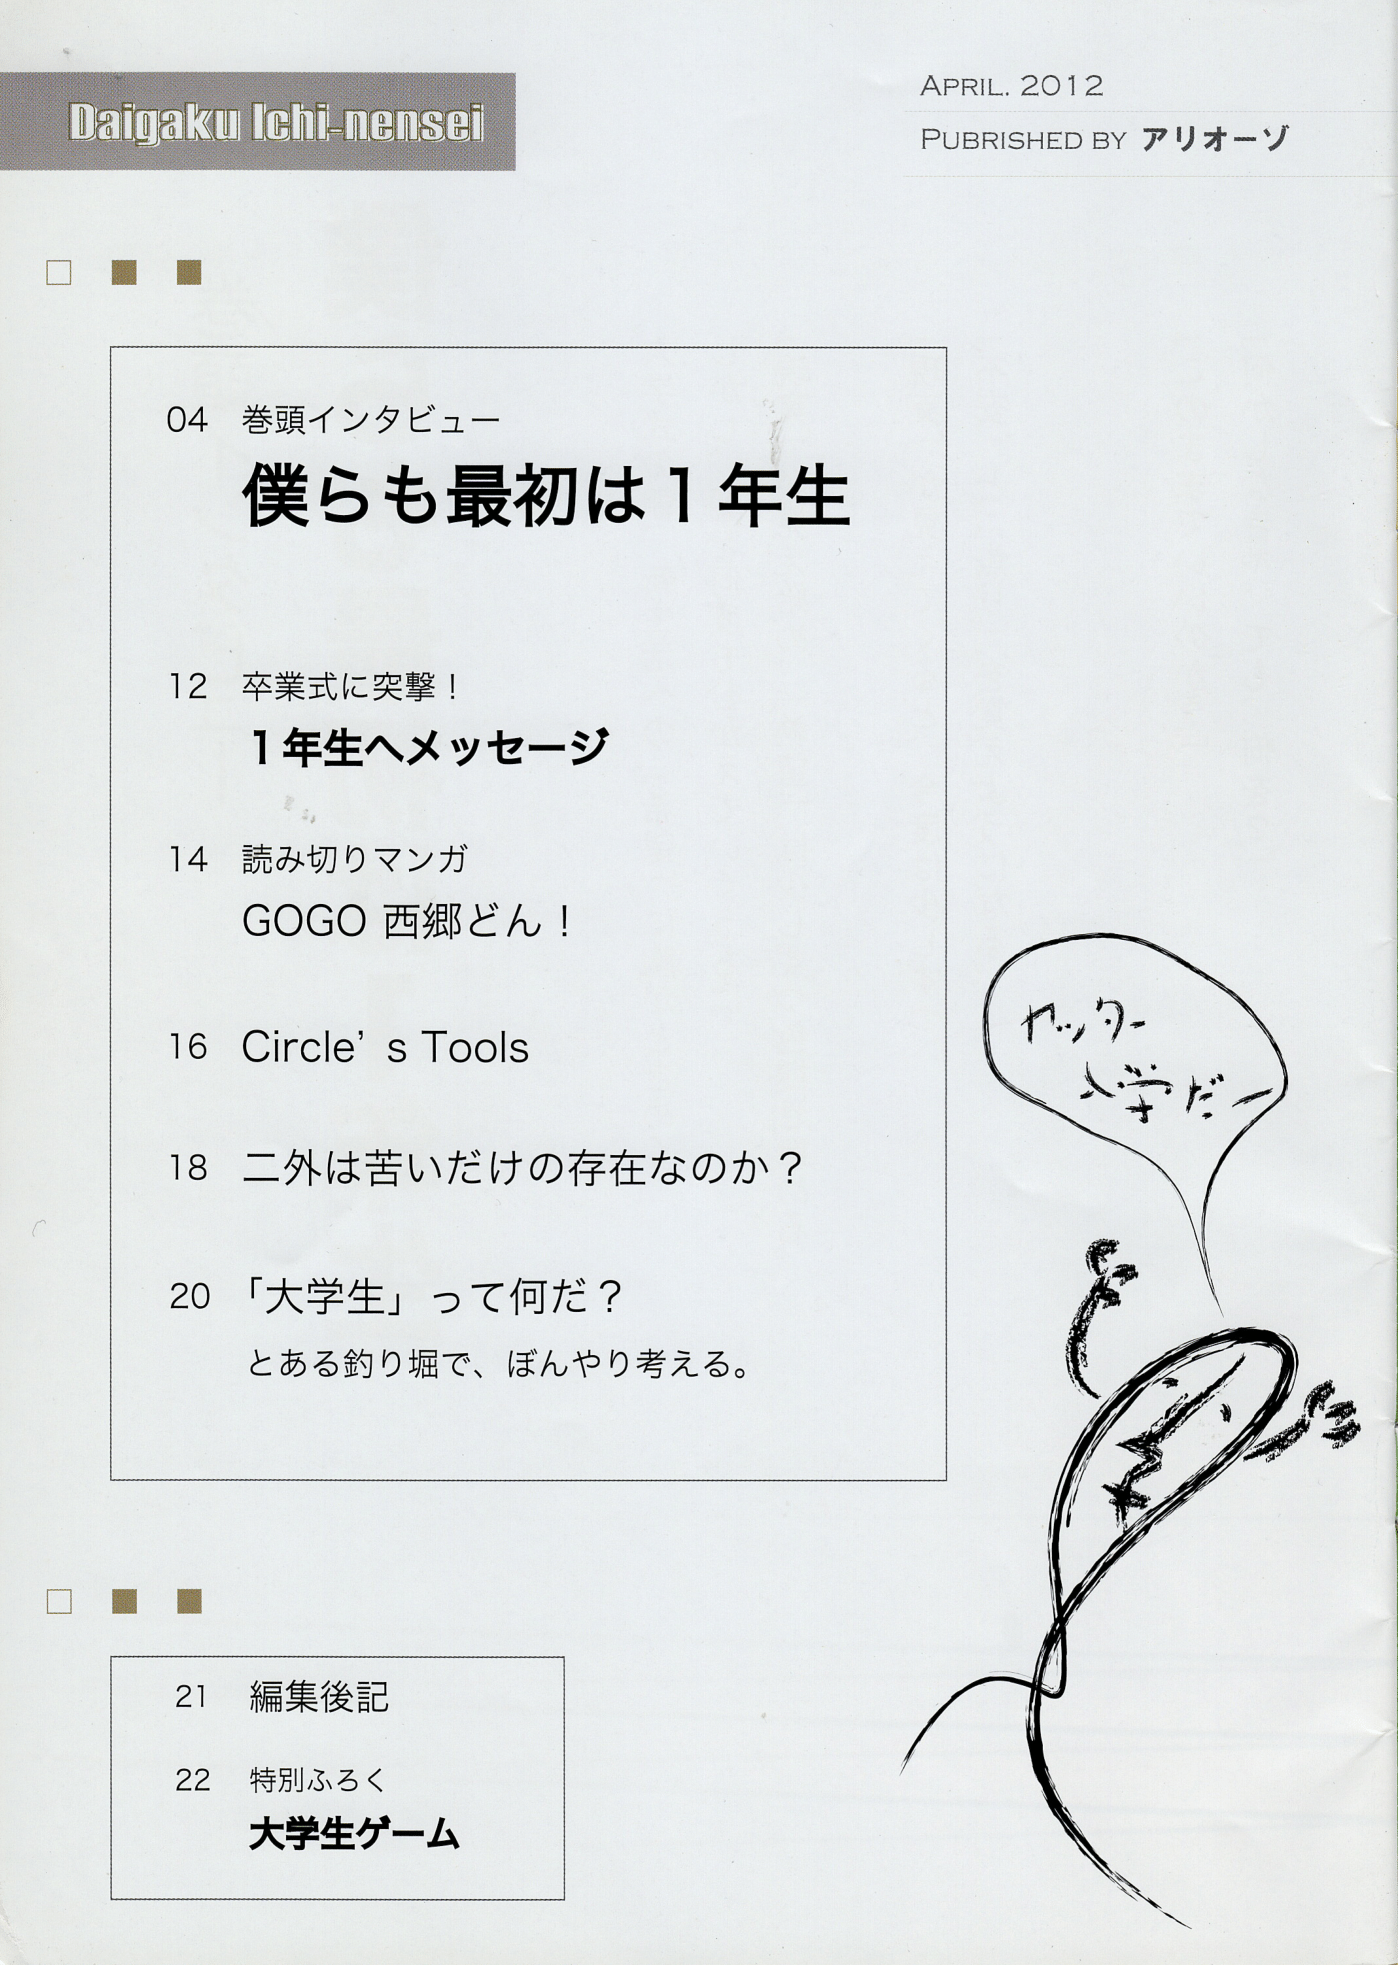 Daigaku Ichi-nensei
APRIL. 2012
PUBRISHED BY アリオーゾ
04 巻頭インタビュー
僕らも最初は１年生
12 卒業式に突撃！
１年生へメッセージ
14 読み切りマンガ
GOGO 西郷どん！
16 Circle’s Tools
18 二外は苦いだけの存在なのか？
20 「大学生」って何だ？
とある釣り堀で、ぼんやり考える。
ヤッター
入学だー
21 編集後記
22 特別ふろく
大学生ゲーム